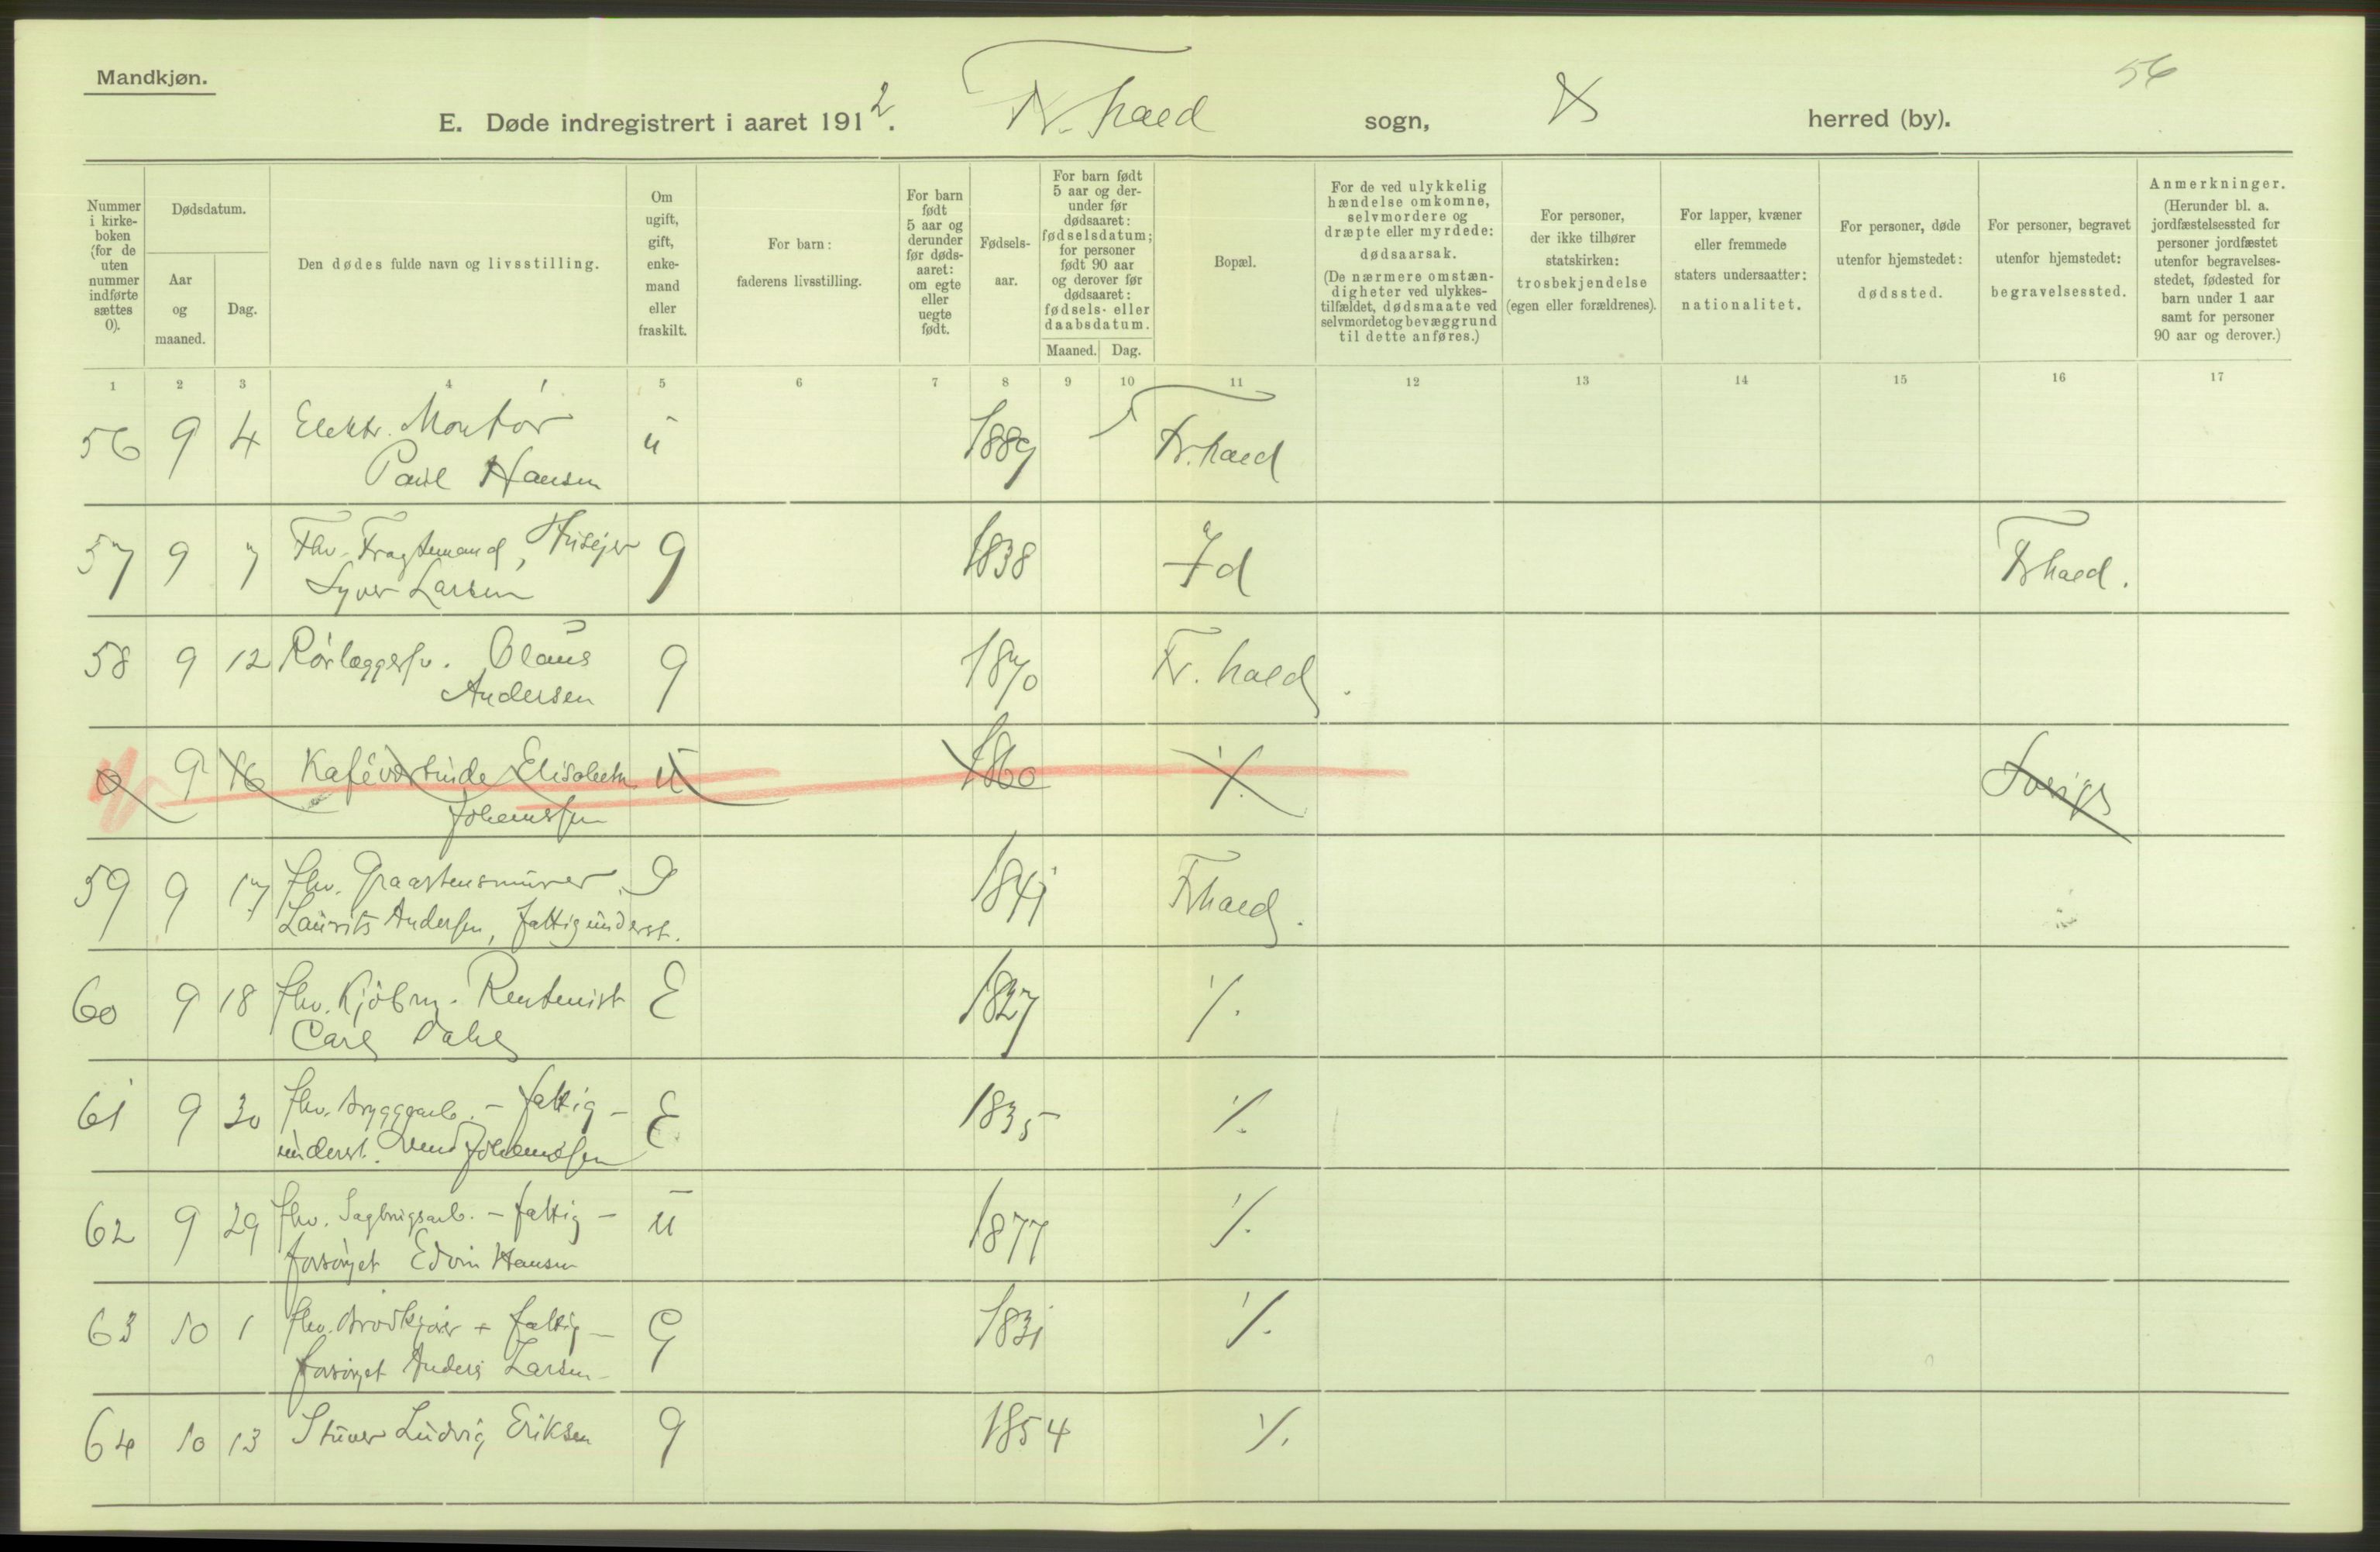 Mandkjøn.
56
E. Døde indregistrert i aaret 1912. Fr.hald sogn, herred (by).
Nummer i kirkeboken (for de uten nummer indførte sættes 0).
Dødsdatum.
Aar og maaned.
Dag.
Den dødes fulde navn og livsstilling.
Om ugift, gift, enkemand eller fraskilt.
For barn: faderens livsstilling.
For barn født 5 aar og derunder før dødsaaret: om egte eller uegte født.
Fødselsaar.
For barn født 5 aar og derunder før dødsaaret: fødselsdatum; for personer født 90 aar og derover før dødsaaret: fødsels- eller daabsdatum.
Maaned. Dag.
Bopæl.
For de ved ulykkelig hændelse omkomne, selvmordere og dræpte eller myrdede: dødsaarsak. (De nærmere omstændigheter ved ulykkestilfældet, dødsmaate ved selvmordet og bevæggrund til dette anføres.)
For personer, der ikke tilhører statskirken: trosbekjendelse (egen eller forældrenes).
For lapper, kvæner eller fremmede staters undersaatter: nationalitet.
For personer, døde utenfor hjemstedet: dødssted.
For personer, begravet utenfor hjemstedet: begravelsessted.
Anmerkninger. (Herunder bl. a. jordfæstelsessted for personer jordfæstet utenfor begravelsesstedet, fødested for barn under 1 aar samt for personer 90 aar og derover.)
1 2 3 4 5 6 7 8 9 10 11 12 13 14 15 16 17
56 9 4 Elektr. Montør u 1889 Fr.hald
Paul Hansen
57 9 7 Fhv. Fragtemand, Husejer g 1838 Id Frhald.
Syver Larsen
58 9 12 Rørlæggersv. Olaus g 1870 Fr. hald.
Andersen
0 9 16 Kaféværtinde Elisabeth u 1860 ./. Sverige
Johannessen
59 9 17 fhv. Graastensmurer g 1841 Frhald.
Laurits Andersen, fattigunderst.
60 9 18 fhv. Kjøbm. Rentenist E 1827 ./.
Carl Dahl
61 9 30 fhv. Bryggearb. - fattig- E 1835 ./.
underst. Svend Johannessen
62 9 29 fhv. Sagbrugsarb. - fattig- u 1877 ./.
forsørget Edvin Hansen
63 10 1 fhv. Brødkjører - fattig- G 1831 ./.
forsørget Anders Larsen
64 10 13 Stuver Ludvig Eriksen g 1854 ./.